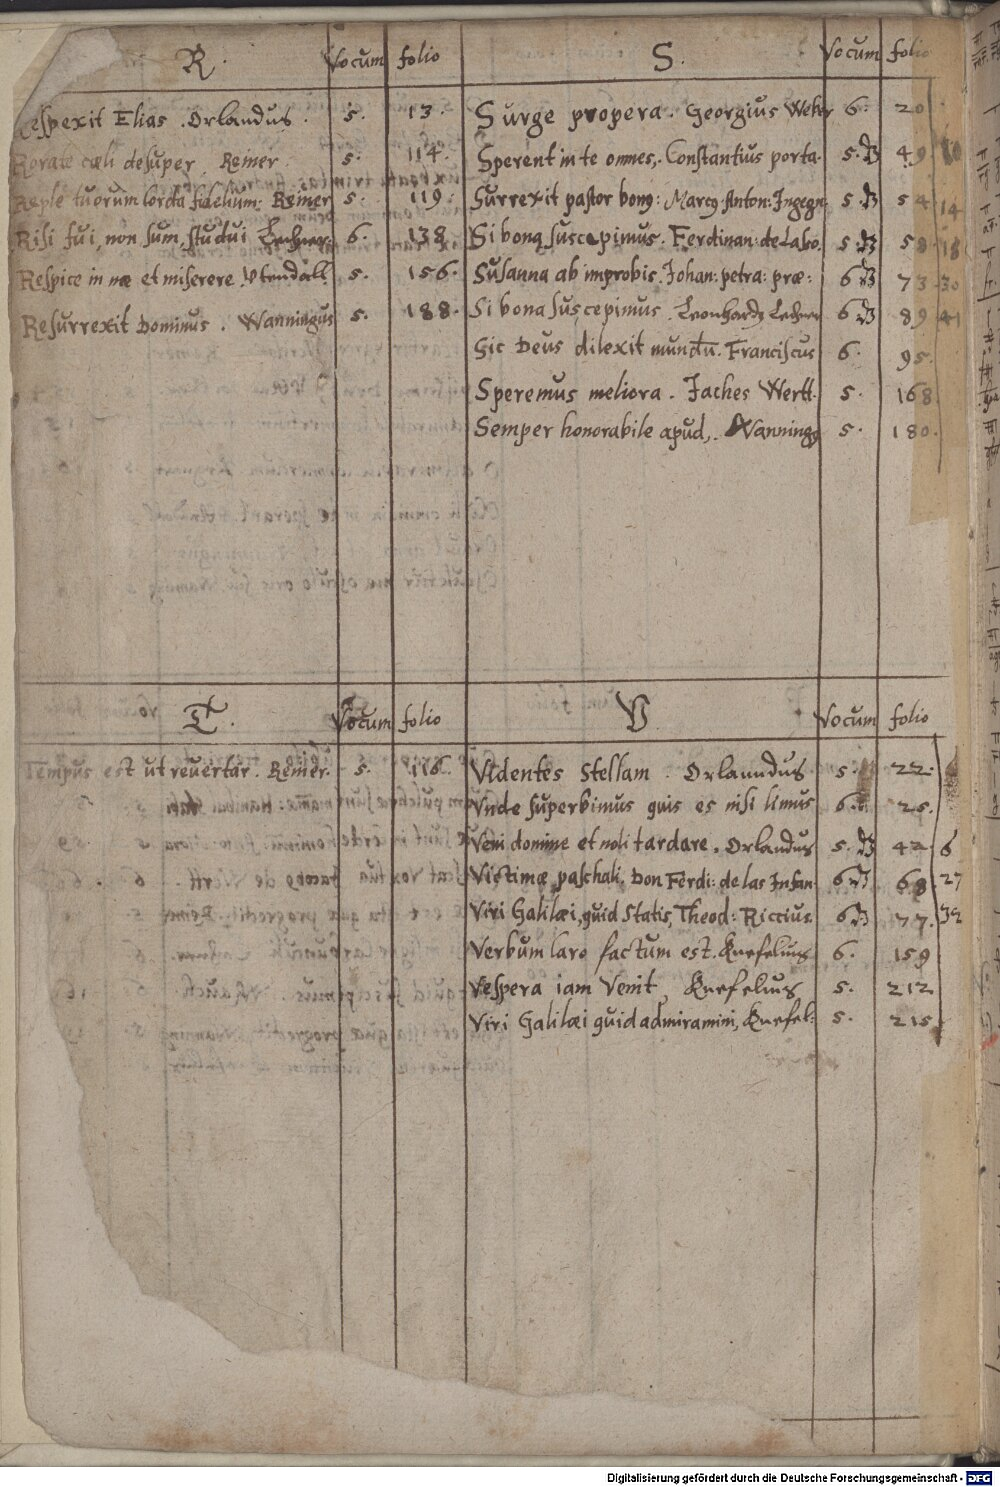 R. Vocum folio
Respexit Elias. Orlandus. 5. 13.
Rorate cæli desuper. Reiner. 5. 114.
Reple tuorum corda fidelium: Reiner 5. 119.
Risi fui, non sum, studui Lechner 6. 138
Respice in me et miserere Utendall. 5. 156.
Resurrexit Dominus. Wanningus 5. 188.
S. Vocum folio
Surge propera. Georgius Weber 6. 20
Sperent in te omnes, Constantius porta. 5. 49
Surrexit pastor bonq: Marcq Anton: Ingegn 5 54 14
Si bona suscepimus. Ferdinan: de Lasso. 5 58 18
Susanna ab improbis. Johan: petra: præ: 6 73 30
Si bona suscepimus. Leonhardq Lechner 6 89 41
Sic Deus dilexit mundū. Franciscus 6. 95.
Speremus meliora. Jaches Wertt. 5. 168
Semper honorabile apud, Wanningq 5. 180.
T. Vocum folio
Tempus est ut reuertar. Reiner. 5. 116.
V Vocum folio
Videntes stellam. Orlanndus 5. 22.
Vnde superbimus quis es nisi limus 6. 25.
Veni domine et noli tardare. Orlandus 5. 42. 6
Victimæ paschali, Don Ferdi: de las Infan. 6 68 27
Viri Galilæi, quid statis, Theod: Riccius. 6 77. 32
Verbum caro factum est. Knefelius 6. 159
Vespera iam Venit, Knefelius 5. 212
Viri Galilæi quid admiramini, Knefel: 5. 215
Digitalisierung gefördert durch die Deutsche Forschungsgemeinschaft - DFG